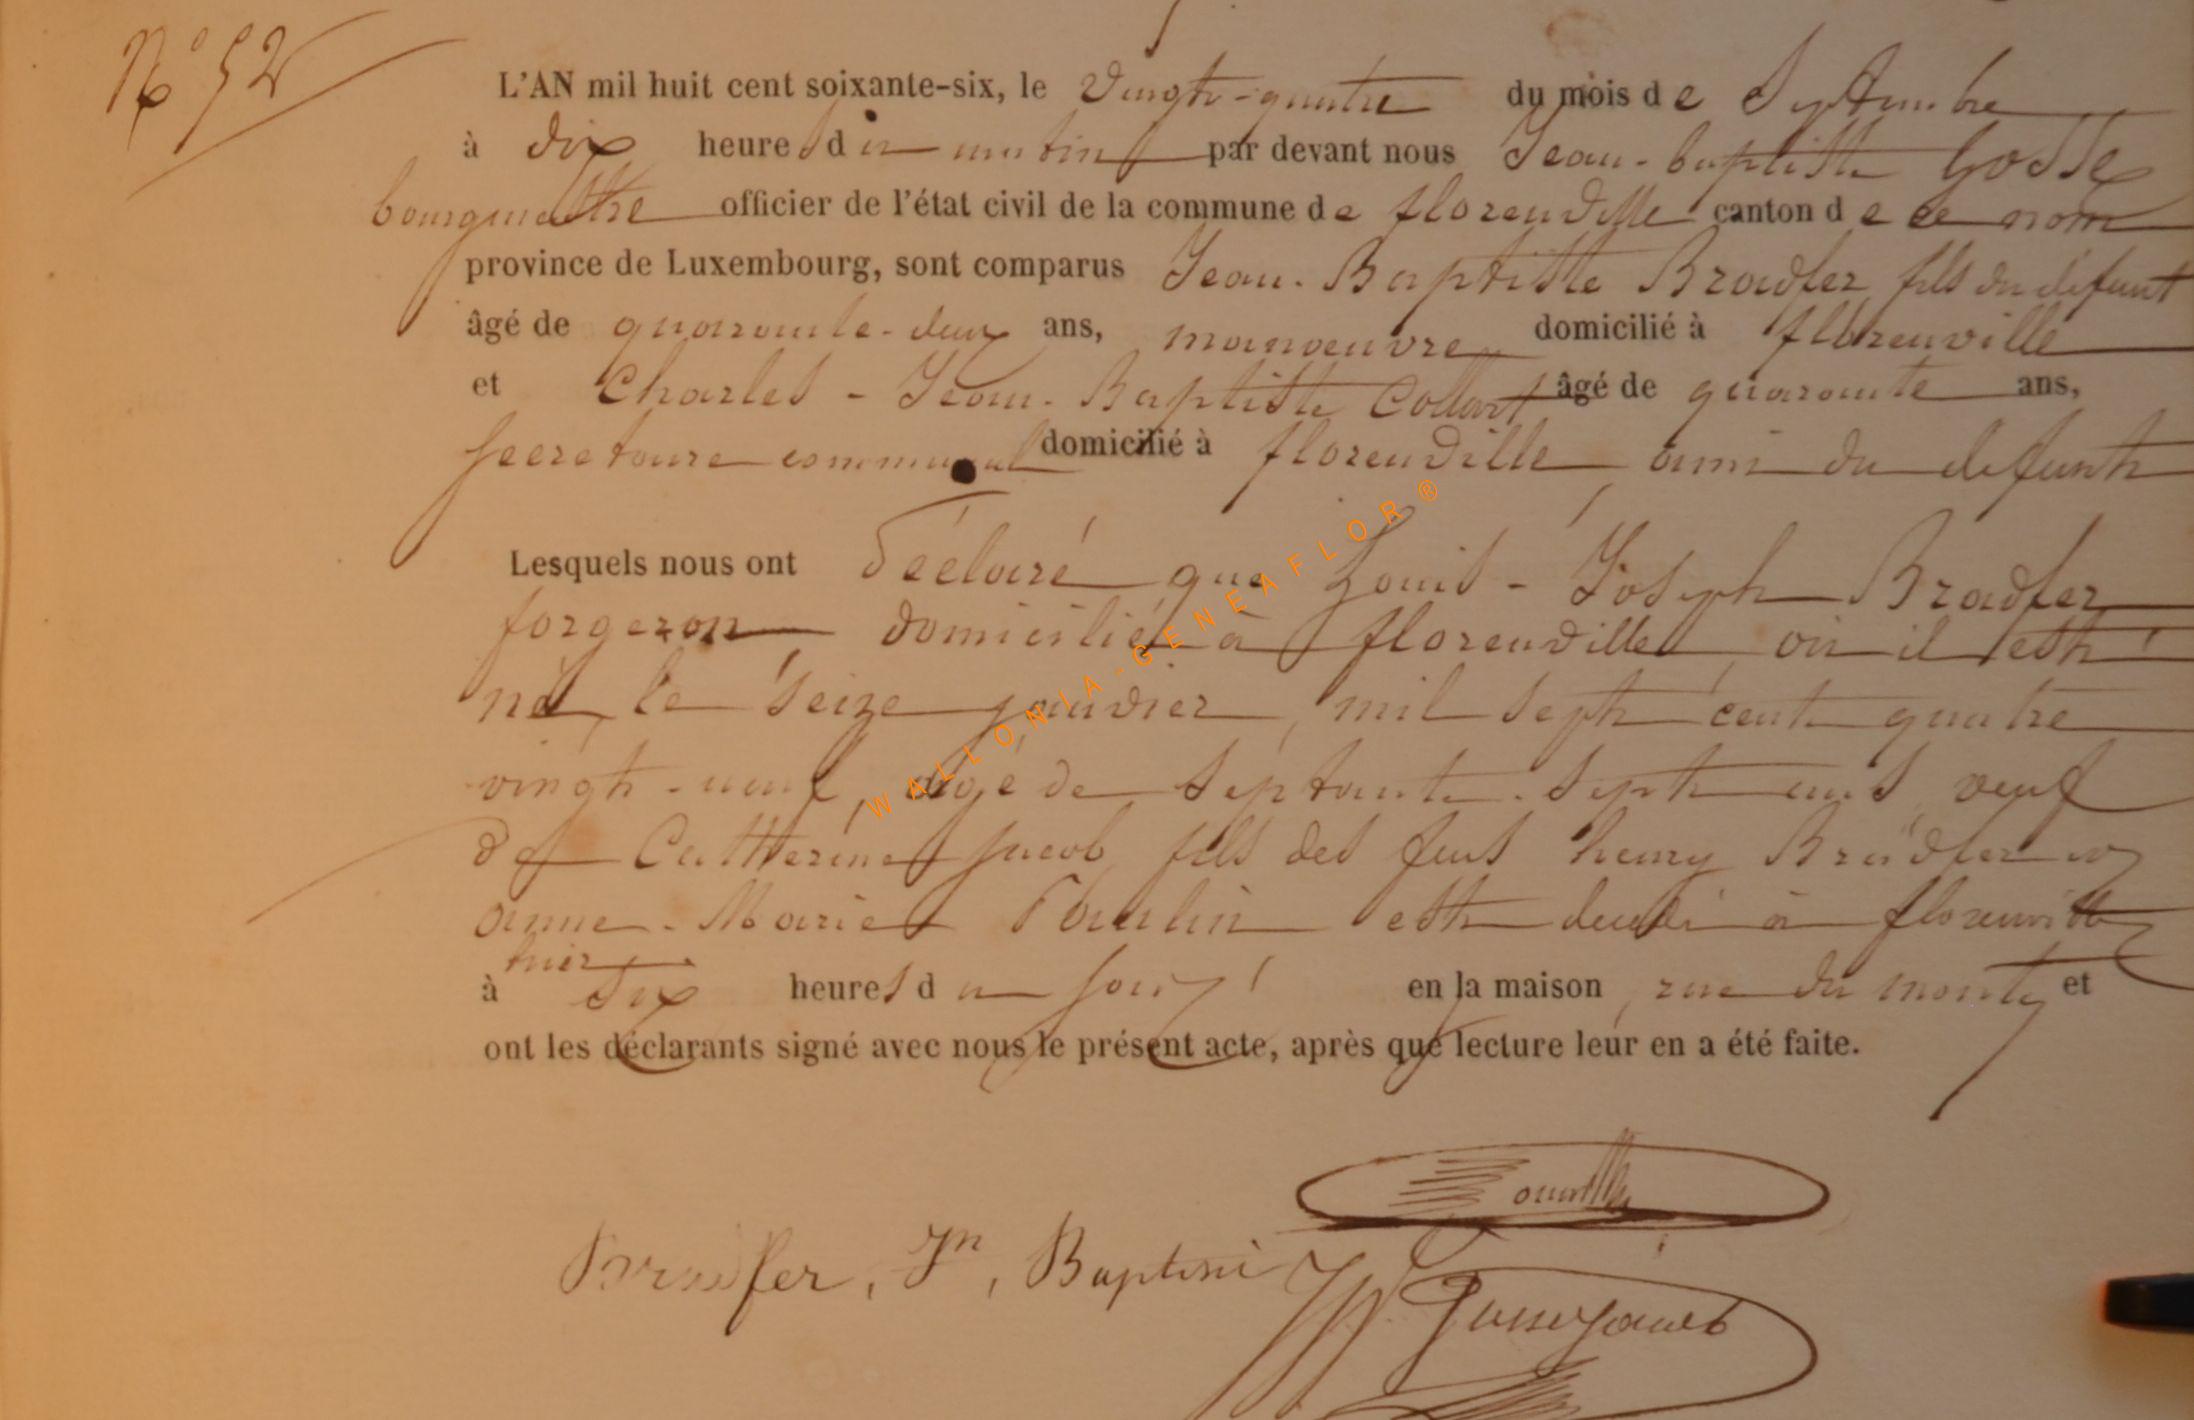 N° 52
L'AN mil huit cent soixante-six, le Vingt-quatre du mois de Septembre
à dix heures du matin par devant nous Jean-baptiste Gosse
bourgmestre officier de l'état civil de la commune de florenville canton de ce nom
province de Luxembourg, sont comparus Jean-Baptiste Bradfer fils du défunt
âgé de quarante-deux ans, manoeuvre domicilié à florenville
et Charles-Jean-Baptiste Collart âgé de quarante ans,
secretaire communal domicilié à florenville, ami du defunt
Lesquels nous ont déclaré que Louis-Joseph Bradfer
forgeron domicilié à florenville, où il est
né, le seize janvier, mil sept cent quatre
vingt-neuf, agé de septante-sept ans, veuf
de Catherine Jacob, fils des feus henry Bradfer et
anne-Marie Poulin est decedé à florenville
hier
à six heures du soir en la maison, rue du monty et
ont les déclarants signé avec nous le présent acte, après que lecture leur en a été faite.
Bradfer, Jn, Baptiste
WALLONIA-GENEAFLOR®